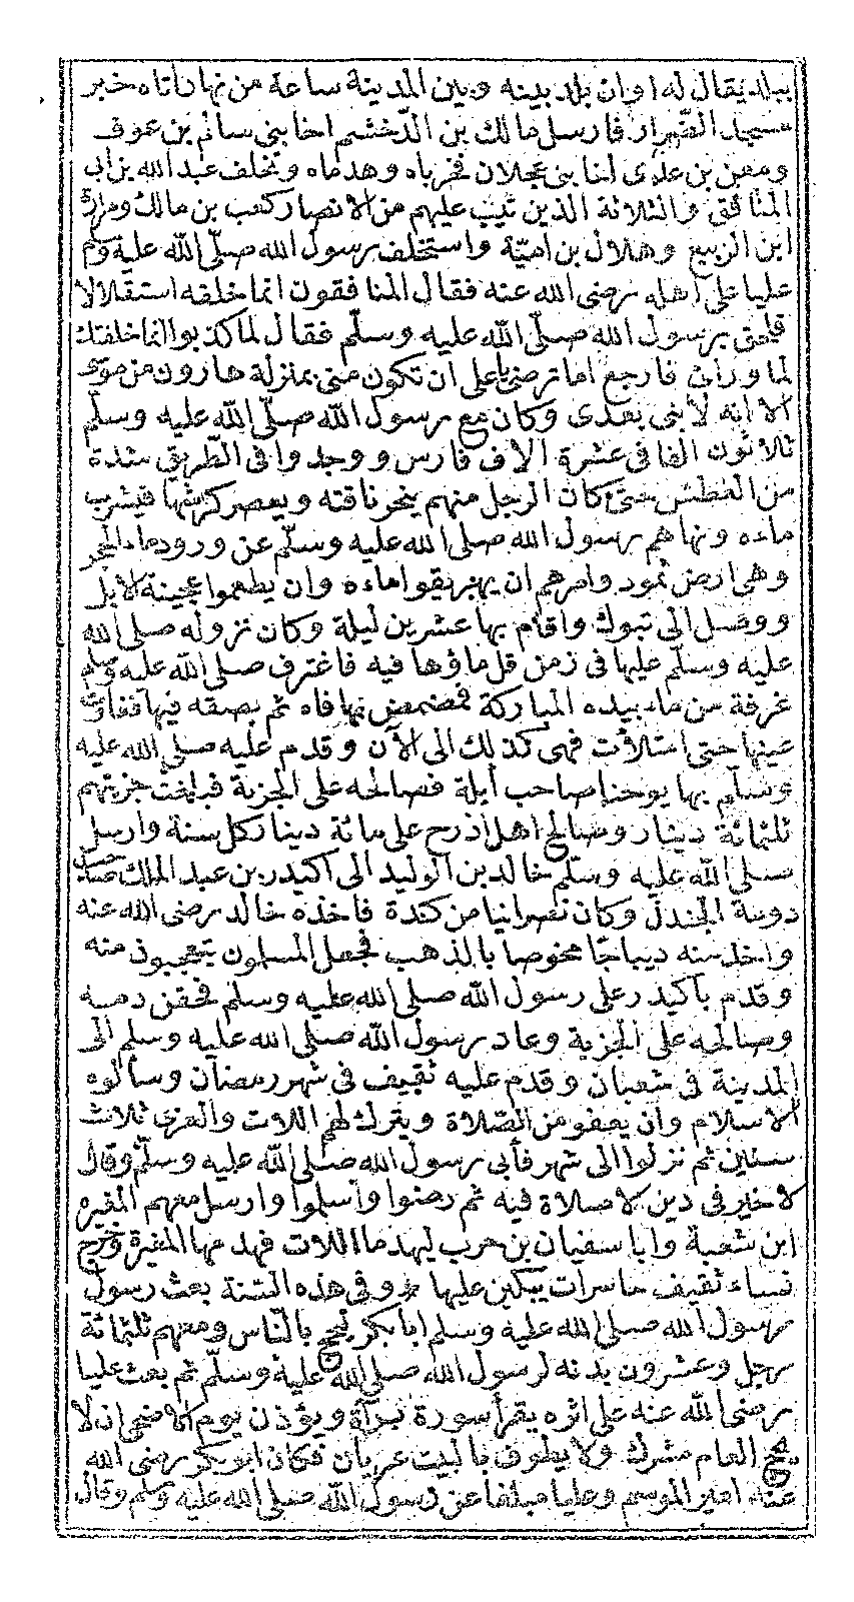 ببلد يقال له اوان بلد بينه وبين المدينة ساعة من نهار اتاه خبر
مسجد الضرار فارسل مالك بن الدخشم اخا بني سالم بن عوف
ومعن بن عدي اخا بني عجلان فخرباه وهدماه وتخلف عبد الله بن ابي
المنافق والثلاثة الذين تيب عليهم من الانصار كعب بن مالك ومرارة
ابن الربيع وهلال بن امية واستخلف رسول الله صلّى الله عليه وسلم
عليا على اهله رضى الله عنه فقال المنافقون انما خلفه استقلالا
فلحق برسول الله صلّى الله عليه وسلّم فقال لما كذبوا انما خلفتك
لما ورائ فارجع اما ترضى يا على ان تكون منى بمنزلة هارون من موسى
الا انه لا نبى بعدى وكان مع رسول الله صلّى الله عليه وسلّم
ثلاثون الفا فى عشرة الاف فارس ووجدوا فى الطريق شدة
من العطش حتى كان الرجل منهم ينحر ناقته ويعصر كرشها فيشرب
ماءه ونهاهم رسول الله صلى الله عليه وسلّم عن ورود ماء الحجر
وهى ارض ثمود وامرهم ان يهريقوا ماءه وان يطعموا عجينة الابل
ووصل الى تبوك واقام بها عشرين ليلة وكان نزوله صلى الله
عليه وسلّم عليها فى زمن قل ماؤها فيه فاغترف صلى الله عليه وسلم
غرفة من ماء بيده المباركة فمضمض بها فاه ثم بصقه فيها ففارت
عينها حتى امتلأت فهى كذلك الى الآن وقدم عليه صلى الله عليه
وسلم بها يوحنا صاحب أيلة فصالحه على الجزية فبلغت جزيتهم
ثلثمائة دينار وصالح اهل اذرح على مائة دينار كل سنة وارسل
صلى الله عليه وسلّم خالد بن الوليد الى اكيدر بن عبد الملك صاحب
دومة الجندل وكان نصرانيا من كندة فاخذه خالد رضى الله عنه
واخذ منه ديباجا مخوصا بالذهب فجعل المسلمون يتعجبون منه
وقدم باكيدر على رسول الله صلى الله عليه وسلم فحقن دمه
وصالحه على الجزية وعاد رسول الله صلى الله عليه وسلم الى
المدينة فى شعبان وقدم عليه ثقيف فى شهر رمضان وسألوه
الاسلام وان يعفو من الصّلاة ويترك لهم اللات والعزى ثلاث
سنين ثم نزلوا الى شهر فأبى رسول الله صلى الله عليه وسلّم وقال
لا خير فى دين لا صلاة فيه ثم رضوا وأسلموا وارسل معهم المغيره
ابن شعبة وابا سفيان بن حرب ليهدما اللات فهدمها المغيرة وخرج
نساء ثقيف حاسرات يبكين عليها وفى هذه السّنة بعث رسول
رسول الله صلى الله عليه وسلم ابا بكر ليحج بالنّاس ومعهم ثلثمائة
رجل وعشرون بدنه لرسول الله صلى الله عليه وسلّم ثم بعث عليا
رضى الله عنه على اثره يقرأ سورة براءة ويؤذن يوم الاضحى ان لا
يحج العام مشرك ولا يطوف بالبيت عريان فكان ابو بكر رضى الله
عنه امير الموسم وعليا مبلغا عن رسول الله صلى الله عليه وسلم وقال